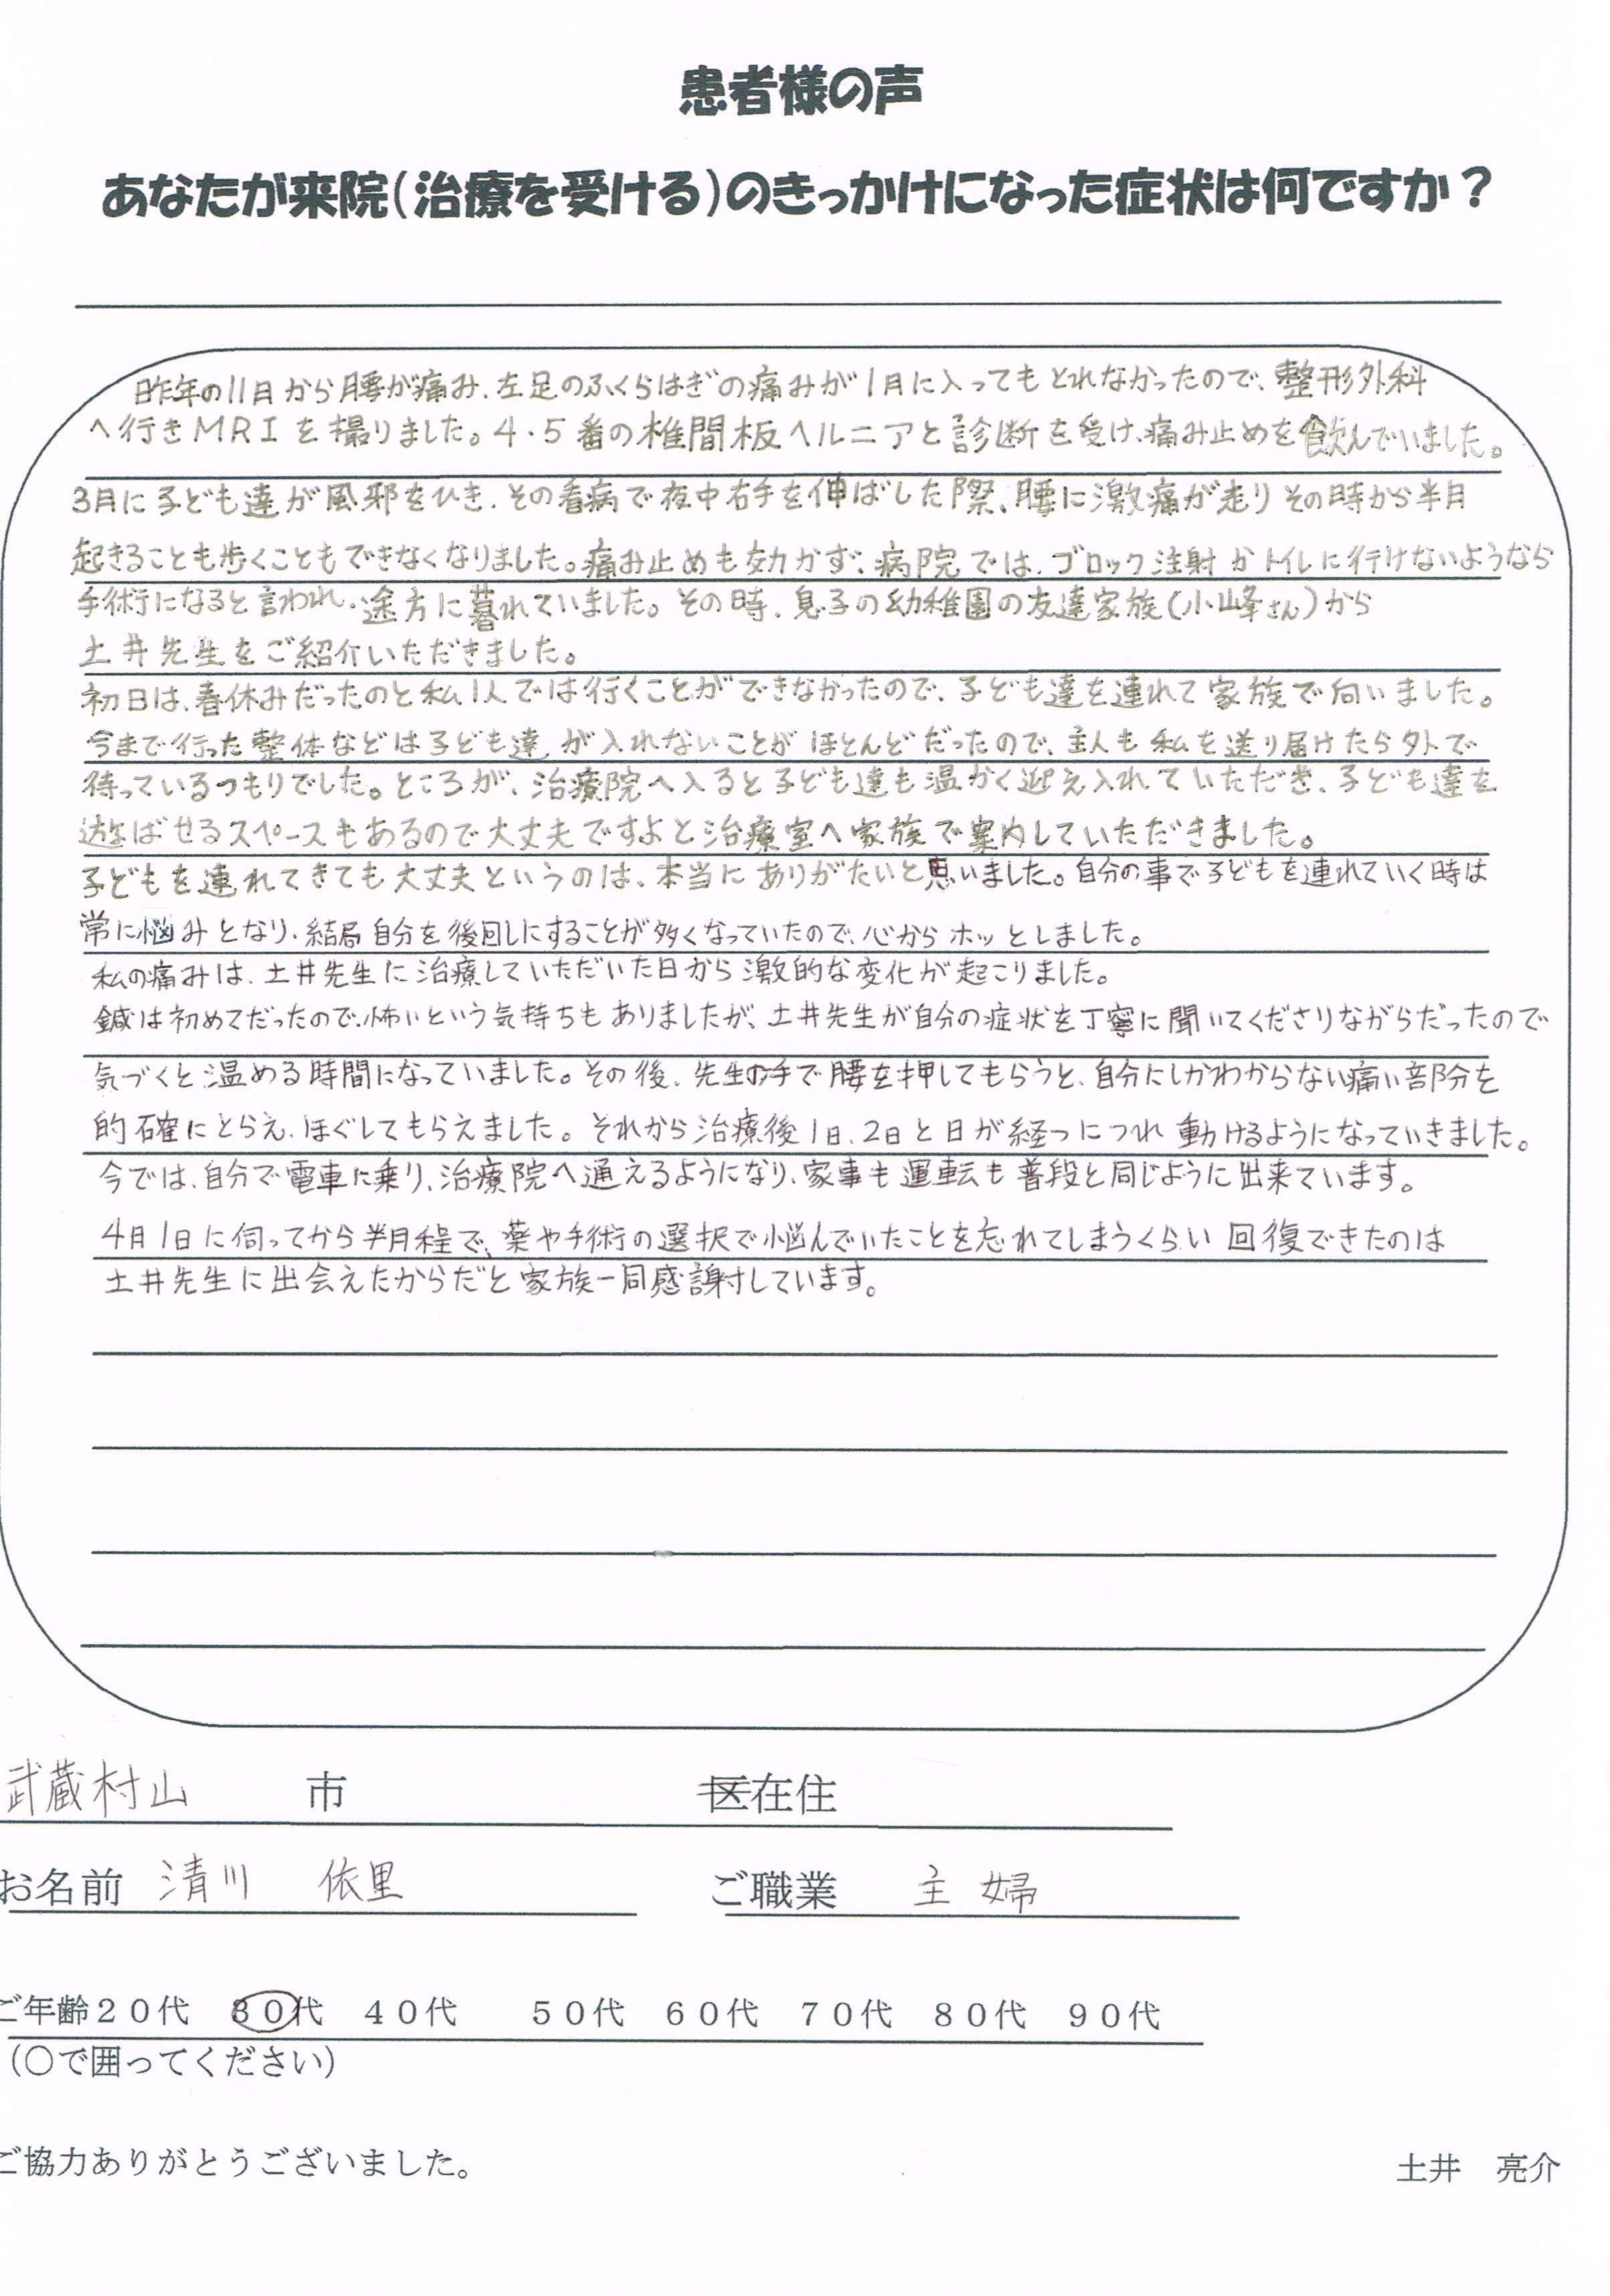 患者様の声
あなたが来院(治療を受ける)のきっかけになった症状は何ですか？
昨年の11月から腰が痛み、左足のふくらはぎの痛みが1月に入ってもとれなかったので、整形外科
へ行きMRIを撮りました。4・5番の椎間板ヘルニアと診断を受け、痛み止めを飲んでいました。
3月に子ども達が風邪をひき、その看病で夜中右手を伸ばした際、腰に激痛が走りその時から半月
起きることも歩くこともできなくなりました。痛み止めも効かず、病院では、ブロック注射かトイレに行けないようなら
手術になると言われ、途方に暮れていました。その時、息子の幼稚園の友達家族(小峰さん)から
土井先生をご紹介いただきました。
初日は、春休みだったのと私1人では行くことができなかったので、子ども達を連れて家族で向いました。
今まで行った整体などは子ども達が入れないことがほとんどだったので、主人も私を送り届けたら外で
待っているつもりでした。ところが、治療院へ入ると子ども達も温かく迎え入れていただき、子ども達を
遊ばせるスペースもあるので大丈夫ですよと治療室へ家族で案内していただきました。
子どもを連れてきても大丈夫というのは、本当にありがたいと思いました。自分の事で子どもを連れていく時は
常に悩みとなり、結局自分を後回しにすることが多くなっていたので、心からホッとしました。
私の痛みは、土井先生に治療していただいた日から激的な変化が起こりました。
鍼は初めてだったので、怖いという気持ちもありましたが、土井先生が自分の症状を丁寧に聞いてくださりながらだったので
気づくと温める時間になっていました。その後、先生の手で腰を押してもらうと、自分にしかわからない痛い部分を
的確にとらえ、ほぐしてもらえました。それから治療後1日、2日と日が経つにつれ動けるようになっていきました。
今では、自分で電車に乗り、治療院へ通えるようになり、家事も運転も普段と同じように出来ています。
4月1日に伺ってから半月程で、薬や手術の選択で悩んでいたことを忘れてしまうくらい回復できたのは
土井先生に出会えたからだと家族一同感謝しています。
武蔵村山 市 区在住
お名前 清川 依里 ご職業 主婦
ご年齢20代 30代 40代 50代 60代 70代 80代 90代
(○で囲ってください)
ご協力ありがとうございました。 土井 亮介